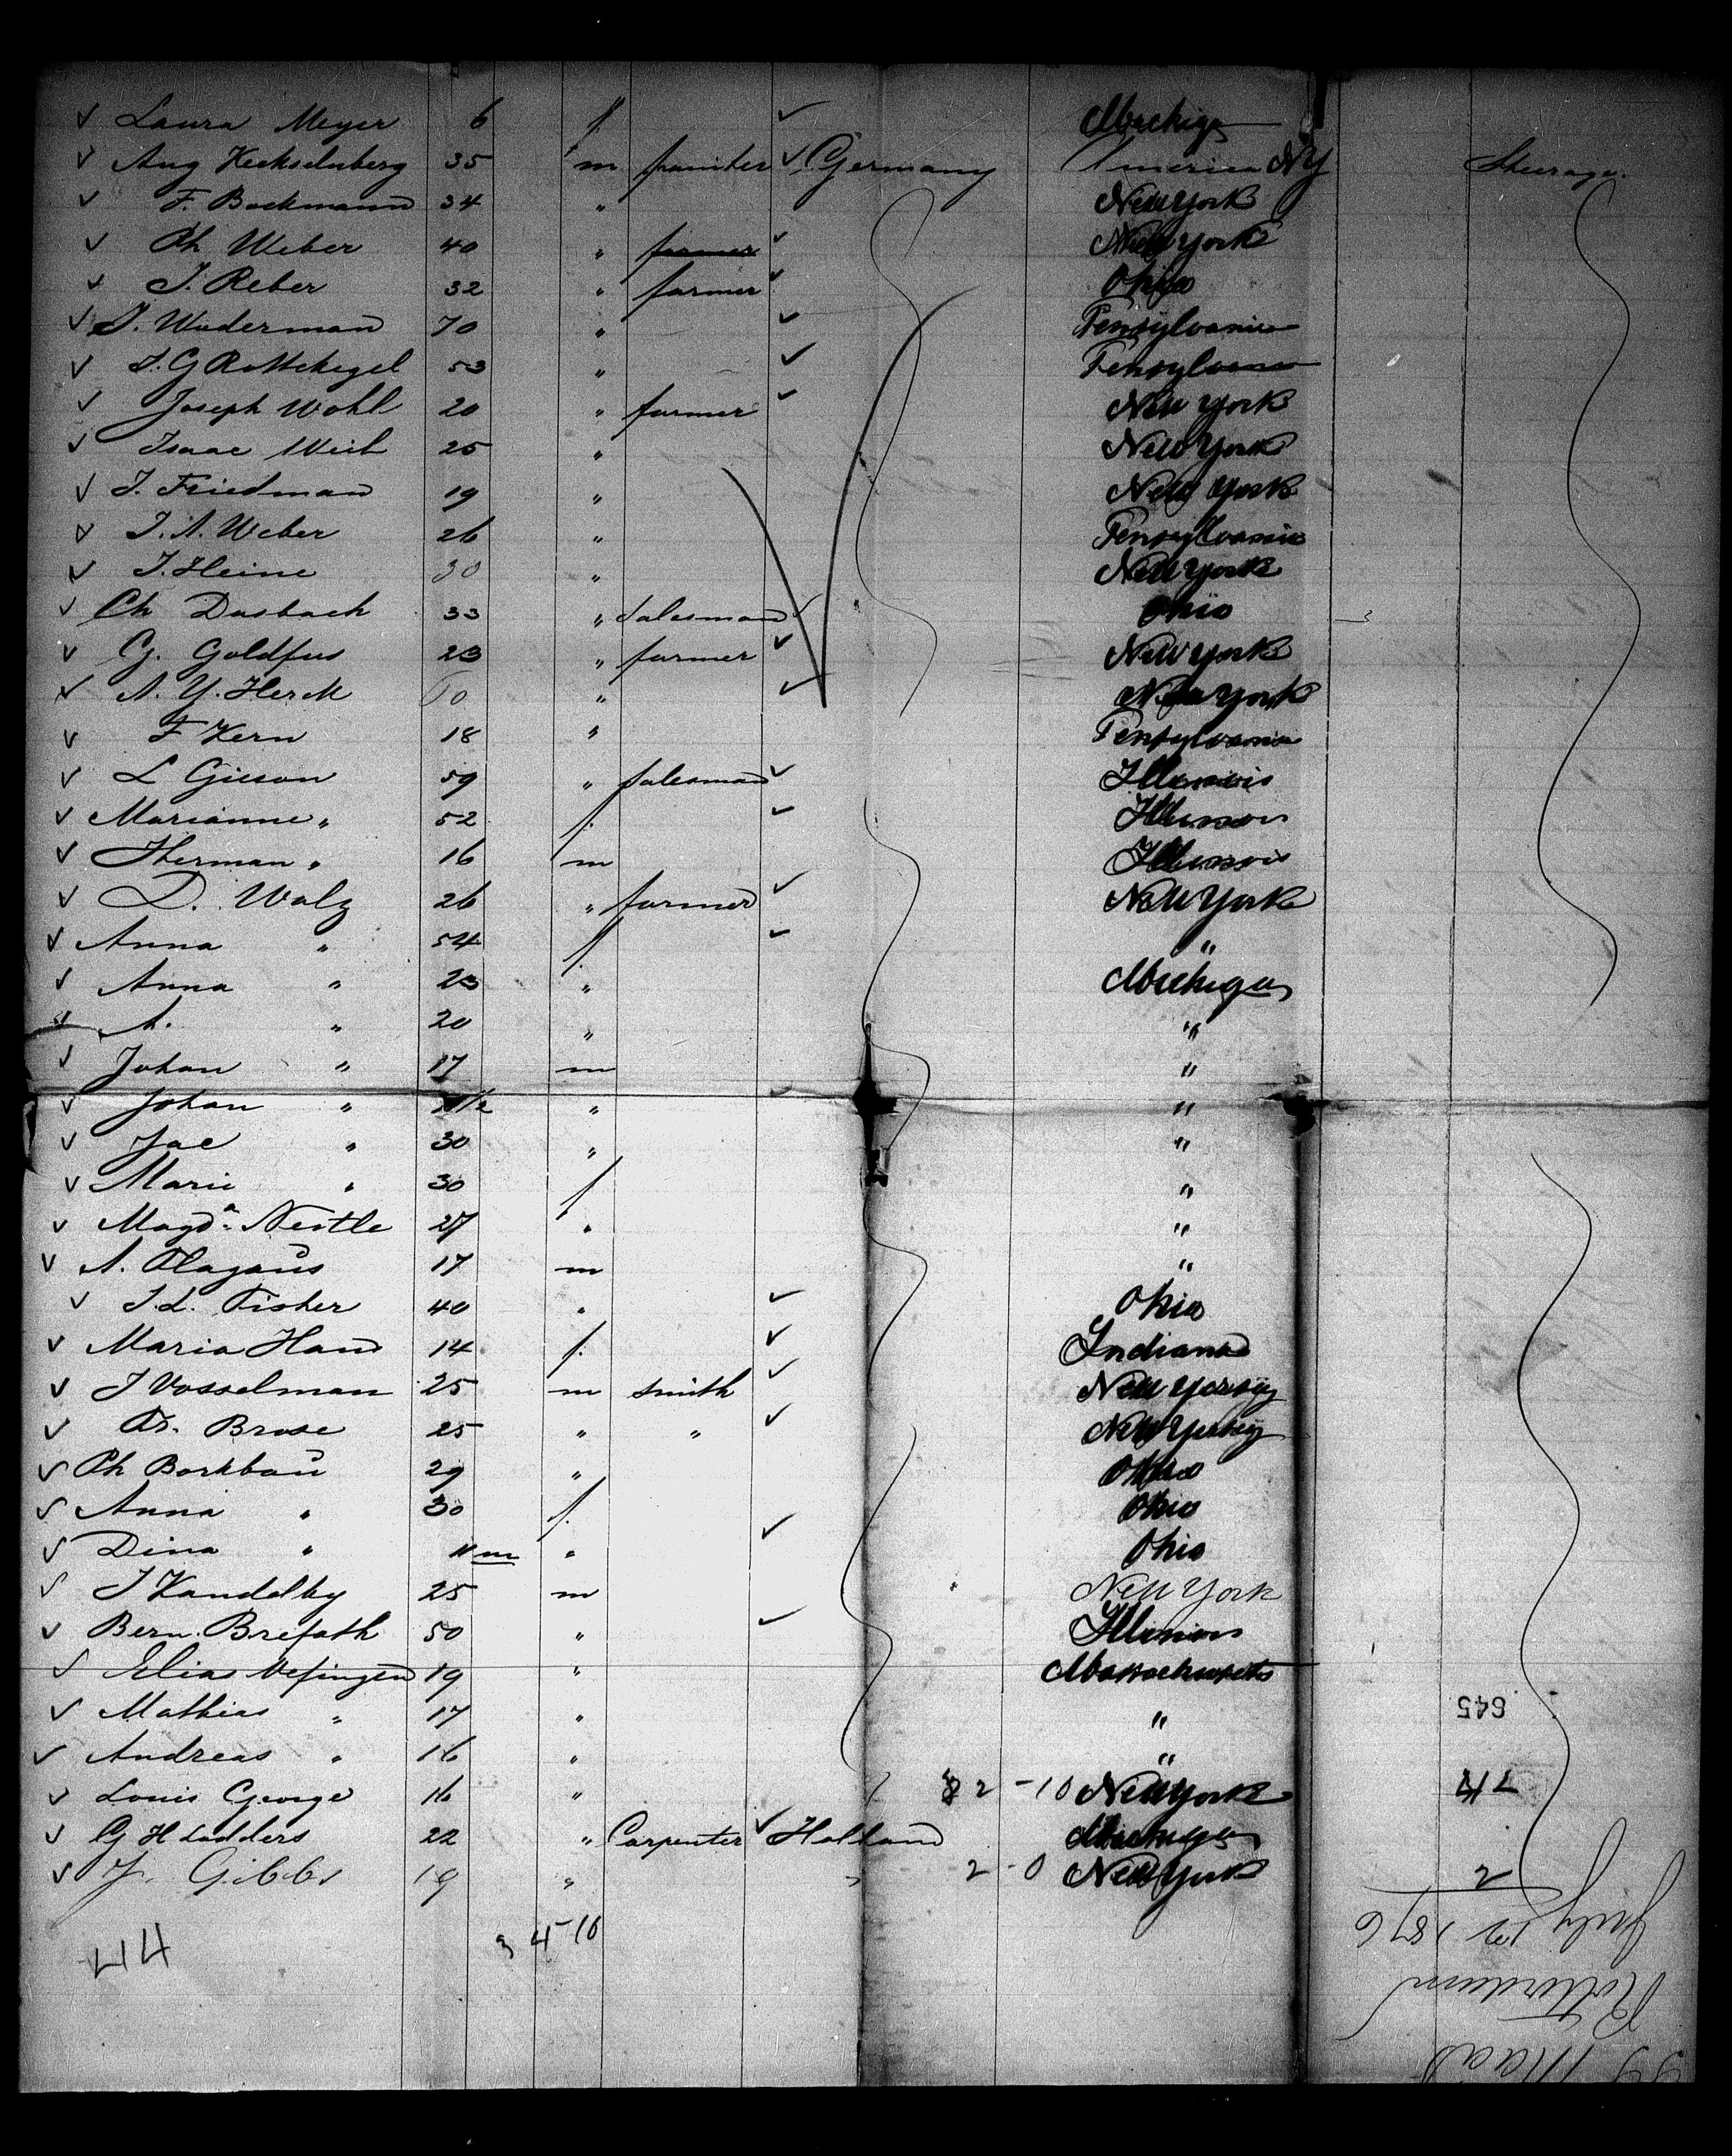 ✓ Laura Meyer 6 f ✓ Michiga
✓ Aug Keckselnberg 35 m painter ✓ Germany America NY Steerage.
✓ F. Bockmann 34 " New York
✓ Ph Weber 40 " farmer ✓ New York
✓ J. Reber 32 " farmer ✓ Ohio
✓ J. Wuderman 70 " ✓ Pensylvania
✓ J. G Rottekegel 53 " ✓ Pensylvania
✓ Joseph Wohl 20 " farmer ✓ New York
✓ Isaac Weil 25 " New York
✓ J. Friedman 19 " New York
✓ J. A. Weber 26 " Pensylvania
✓ J. Heine 30 " New York
✓ Ch Dasbach 33 " Salesman ✓ Ohio
✓ G. Goldfus 23 " farmer ✓ New York
✓ A. Y. Herck 60 " ✓ New York
✓ F Kern 18 " Pensylvania
✓ L Gieson 59 " Salesman ✓ Illinois
✓ Marianne " 52 f. ✓ Illinois
✓ Herman " 16 m Illinois
✓ D. Walz 26 " farmer ✓ New York
✓ Anna " 54 f. ✓ "
✓ Anna " 23 " Michigan
✓ A. " 20 " "
✓ Johan " 17 m "
✓ Johan " " "
✓ Jac " 30 " "
✓ Marie " 30 f "
✓ Magda Nestle 27 " "
✓ A. Plagaus 17 m "
✓ J. L. Fisher 40 " ✓ Ohio
✓ Maria Hand 14 f. ✓ Indiana
✓ J Vosselman 25 m smith ✓ New Yersey
✓ Fr. Brose 25 " " ✓ New Yersey
✓ Ph Borkbau 29 " Ohio
✓ Anna " 30 f. Ohio
✓ Dina " 11 m " ✓ Ohio
✓ J Kandelby 25 m New York
✓ Bern. Brefath 50 " ✓ Illinois
✓ Elias Vefingen 19 " Massachusetts
✓ Mathias " 17 " "
✓ Andreas " 16 " "
✓ Louis George 16 " 2 - 10 New York
✓ G H Lodders 22 " Carpenter ✓ Holland Michigan
✓ J. Gibbs 19 " " 2 - 0 New York
3 4 - 10
44
645
717
2
July 12 1876
Rotterdam
SS Maas